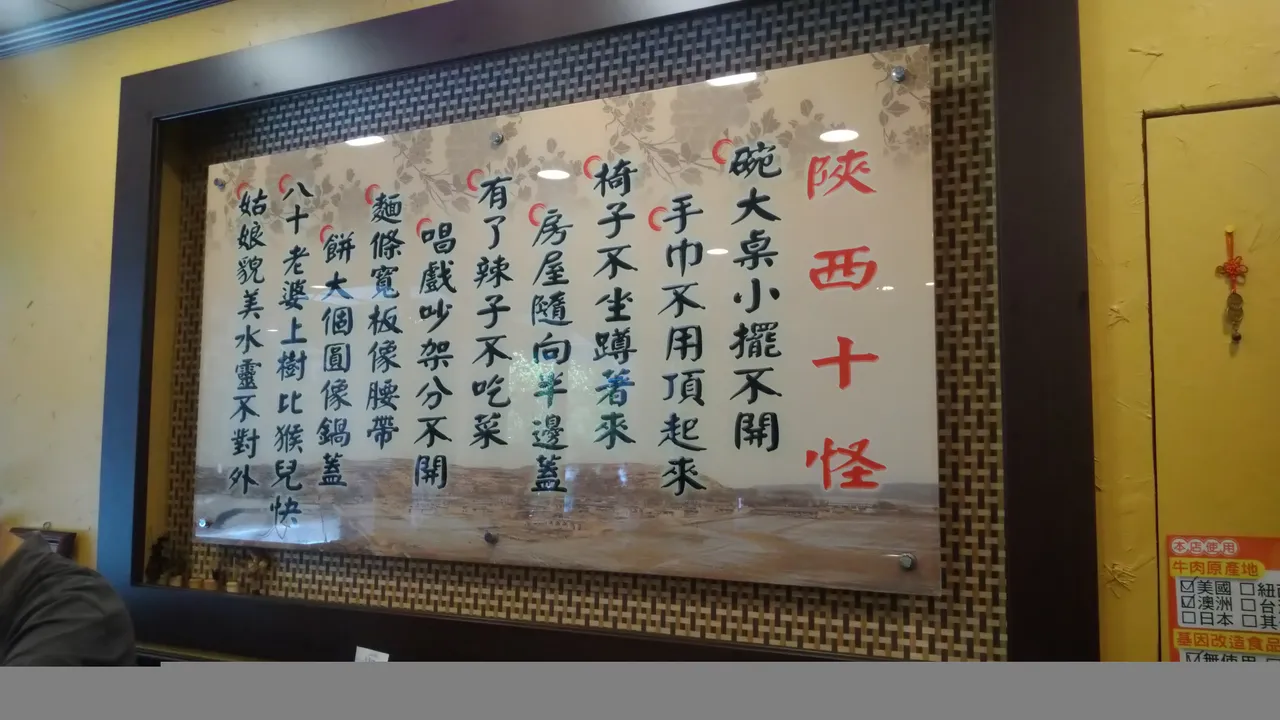 陝西十怪
碗大桌小擺不開
手巾不用頂起來
椅子不坐蹲著來
房屋隨向半邊蓋
有了辣子不吃菜
唱戲吵架分不開
麵條寬板像腰帶
餅大個圓像鍋蓋
八十老婆上樹比猴兒快
姑娘貌美水靈不對外
本店使用
牛肉原產地
☑美國 □紐
☑澳洲 □台
□日本 □其
基因改造食品
☑無使用